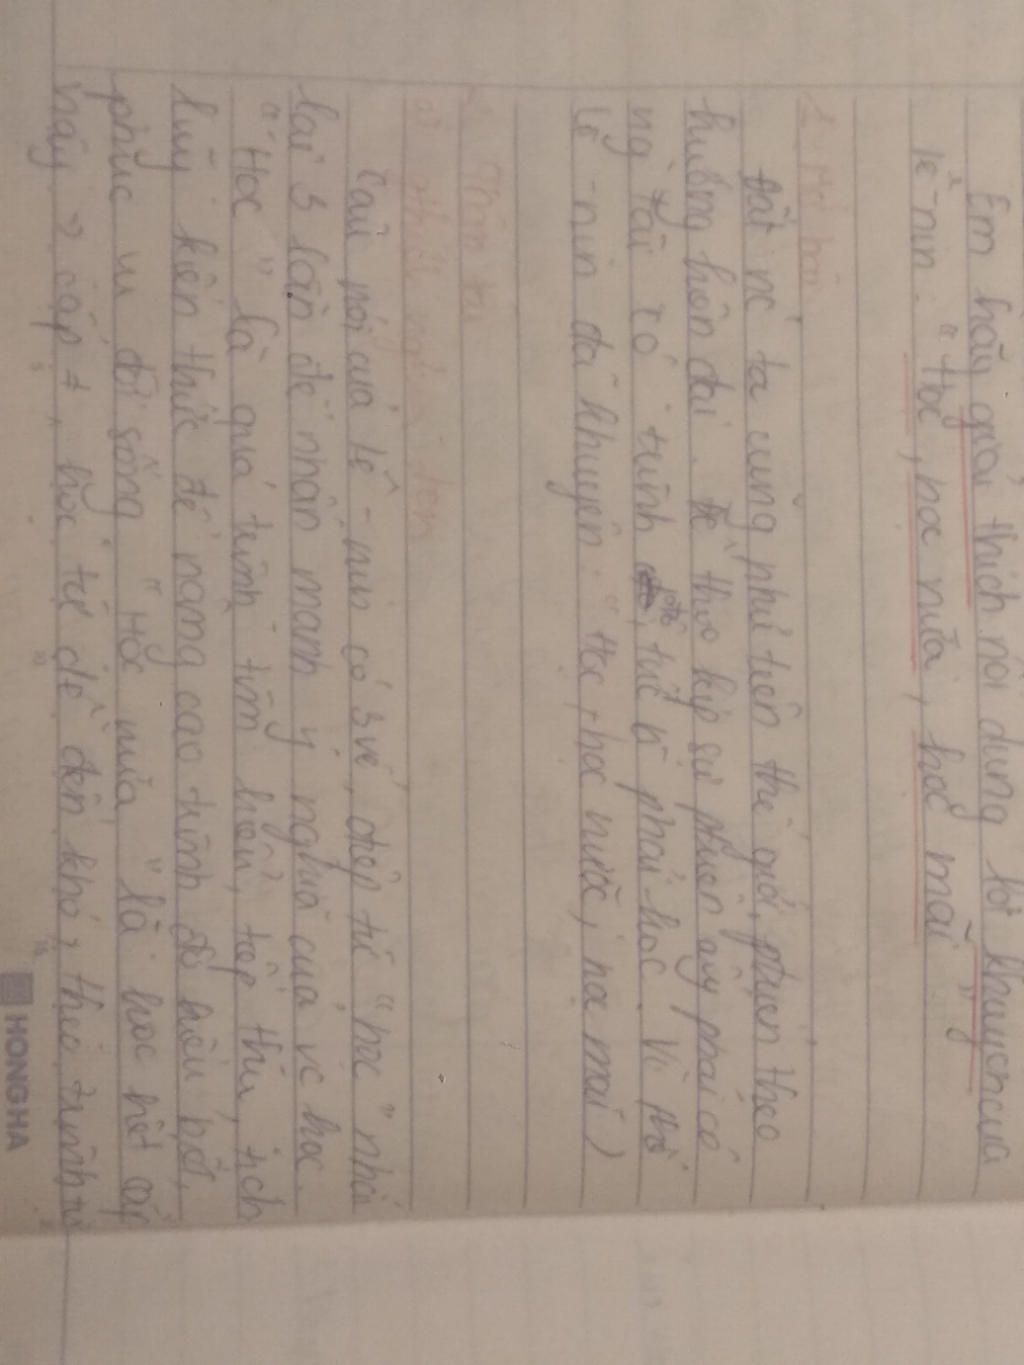 Em hãy giải thích nội dung lời khuyên của
Lê-nin: "Học, học nữa, học mãi"
1. Mở bài
Đất nc ta cũng phát triển thế giới, phát triển theo
hướng hiện đại. Để theo kịp sự phát triển ấy phải có
trình phải học. Vì
Lê-nin đã khuyên: "Học, học nữa, học mãi)
2. Thân bài
a)
Câu nói của Lê-nin có 3 vế, điệp từ "học" nhắc
lại 3 lần để nhấn mạnh ý nghĩa của vc học.
"Học" là quá trình tìm hiểu, tiếp thu, tích
lũy kiến thức để nâng cao trình độ hiểu biết,
phục vụ đời sống "Học nữa" là học hết cấp
này → cấp ≠, học từ dễ đến khó, theo trình tự
HONGHA